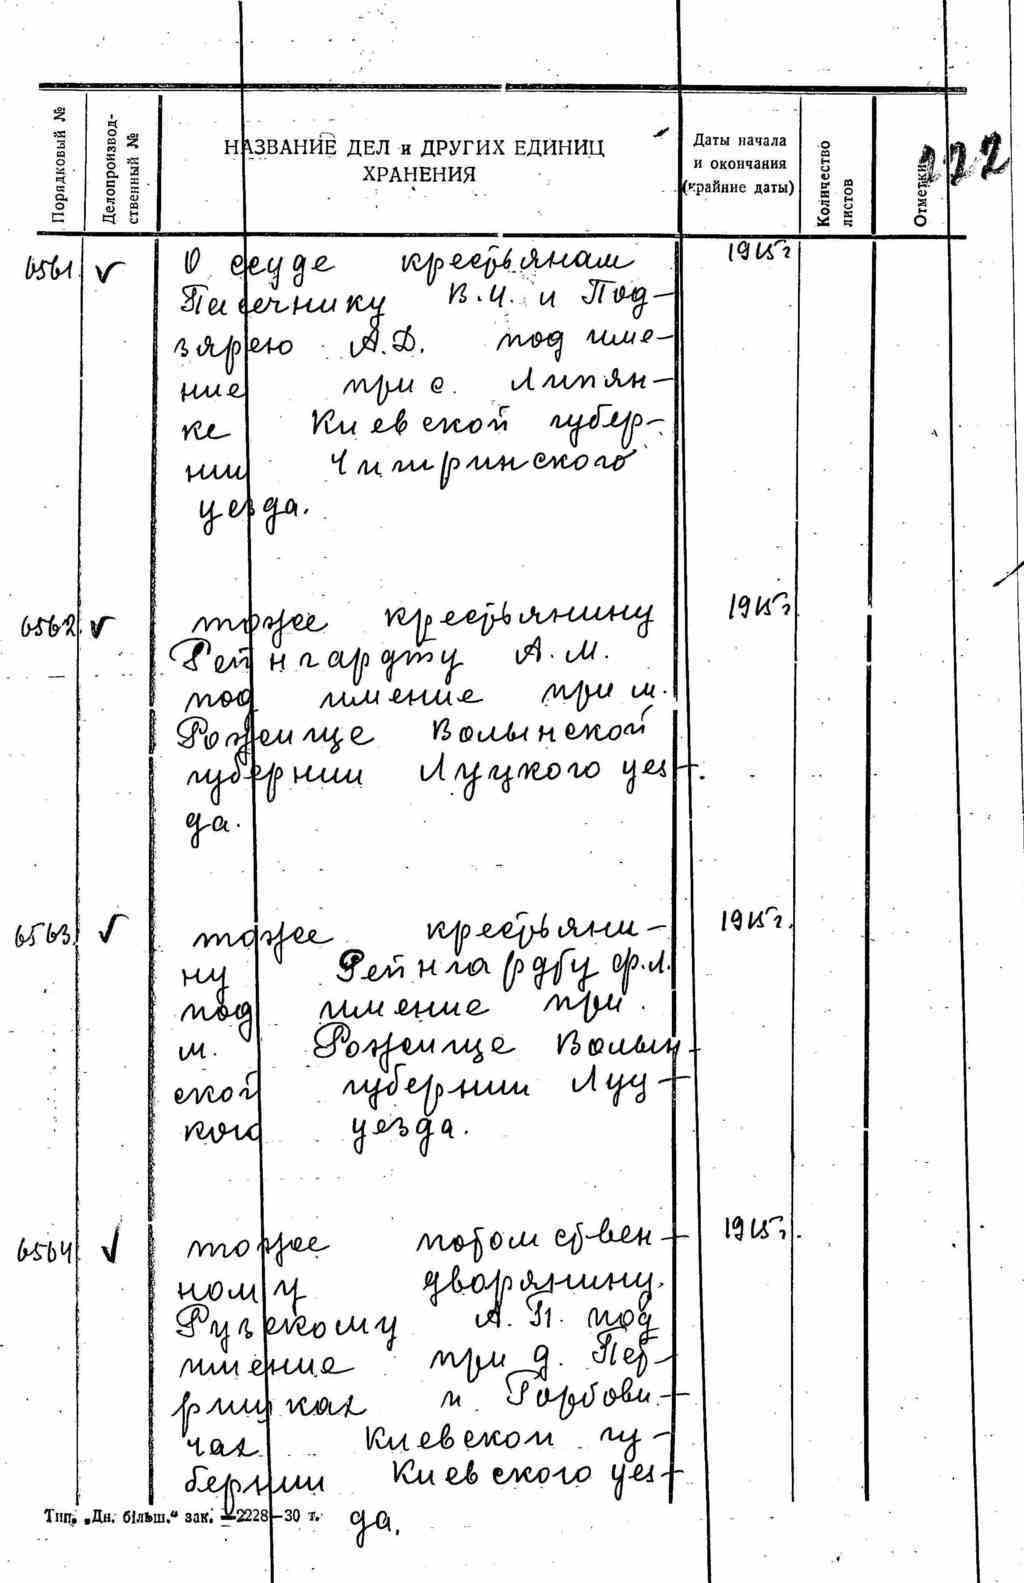 Порядковый №
Делопроизвод-
ственный №
НАЗВАНИЕ ДЕЛ и ДРУГИХ ЕДИНИЦ
ХРАНЕНИЯ
Даты начала
и окончания
(крайние даты)
Количество
листов
Отметки
122
6561 О ссуде крестьянам 1915 г
Пасечнику В.И. и Под-
зярею А.Д. под име-
ние при с. Липян-
ке Киевской губер-
нии Чигиринского
уезда.
6562 тоже крестьянину 1915 г
Рейнгардту А.М.
под имение при м.
Рожище Волынской
губернии Луцкого уез-
да.
6563 тоже крестьяни- 1915 г.
ну Рейнгардту Ф.Л.
под имение при
м. Рожище Волын-
ской губернии Луц-
кого уезда.
6564 тоже потомствен- 1915 г.
ному дворянину
Рузскому А.П. под
имение при д. Пет-
рушках и Горбови-
чах Киевской гу-
бернии Киевского уез-
да.
Тип. „Дн. більш.“ зак. 2228—30 т.